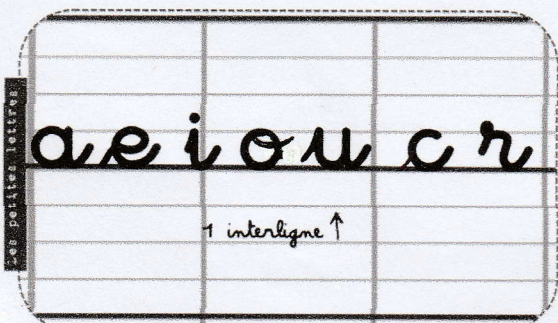 Les petites lettres
a e i o u c r
1 interligne ↑